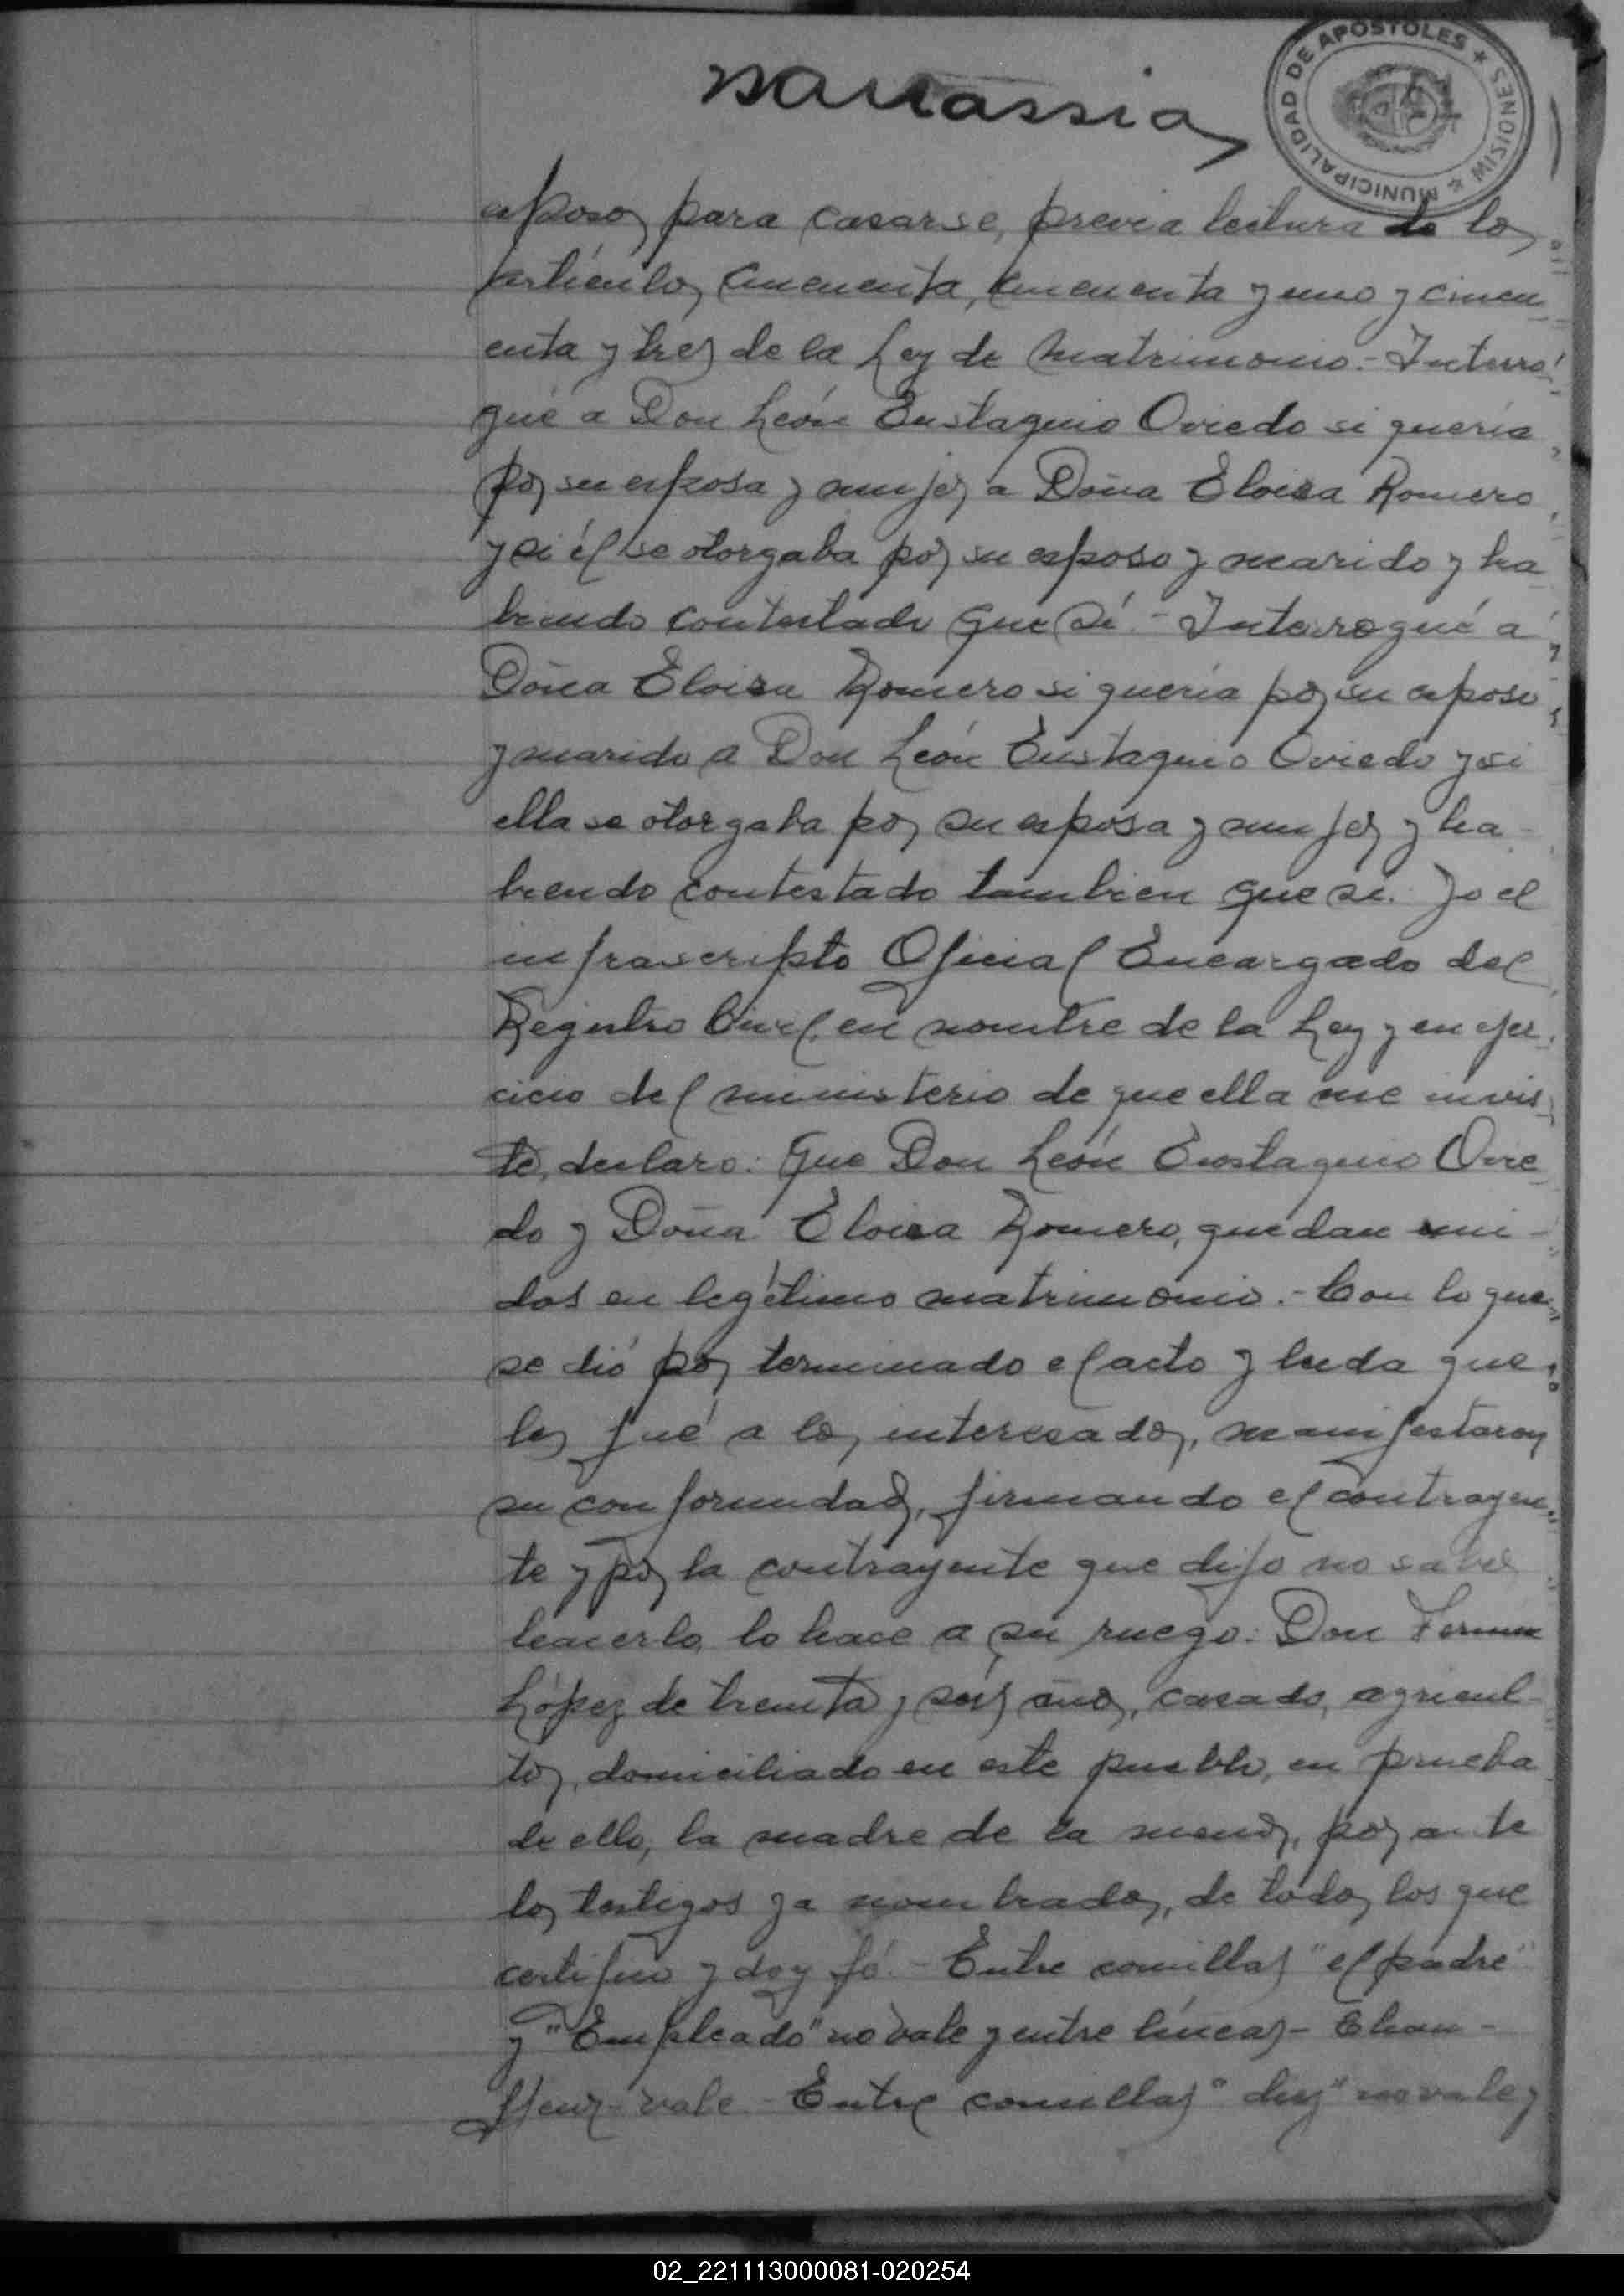 MUNICIPALIDAD DE APOSTOLES ★ MISIONES ★
esposos para casarse, previa lectura de los
artículos cincuenta, cincuenta y uno y cincu
enta y tres de la Ley de Matrimonio.- Interro
gué a Don León Eustaquio Oviedo si quería
por su esposa y mujer a Doña Eloisa Romero
y si él se otorgaba por su esposo y marido y ha
biendo contestado que sí.- Interrogué a
Doña Eloisa Romero si quería por su esposo
y marido a Don León Eustaquio Oviedo y si
ella se otorgaba por su esposa y mujer y ha-
biendo contestado tambien que si. Yo el
infrascripto Oficial Encargado del
Registro Civil, en nombre de la Ley y en ejer
cicio del ministerio de que ella me invis
te, declaro: Que Don León Eustaquio Ovie
do y Doña Eloisa Romero, quedan uni-
dos en legítimo matrimonio.- Con lo que
se dió por terminado el acto y leida que
les fué a los interesados, manifestaron
su conformidad, firmando el contrayen
te y por la contrayente que dijo no saber
hacerlo, lo hace a su ruego: Don Fermin
López de treinta y seis años, casado, agricul-
tor, domiciliado en este pueblo, en prueba
de ello, la madre de la menor, por ante
los testigos ya nombrados, de todos los que
certifico y doy fé.- Entre comillas "el padre"
y "Empleado" no vale y entre líneas- Chau-
ffeur- vale- Entre comillas "diez" no vale y
02_221113000081-020254